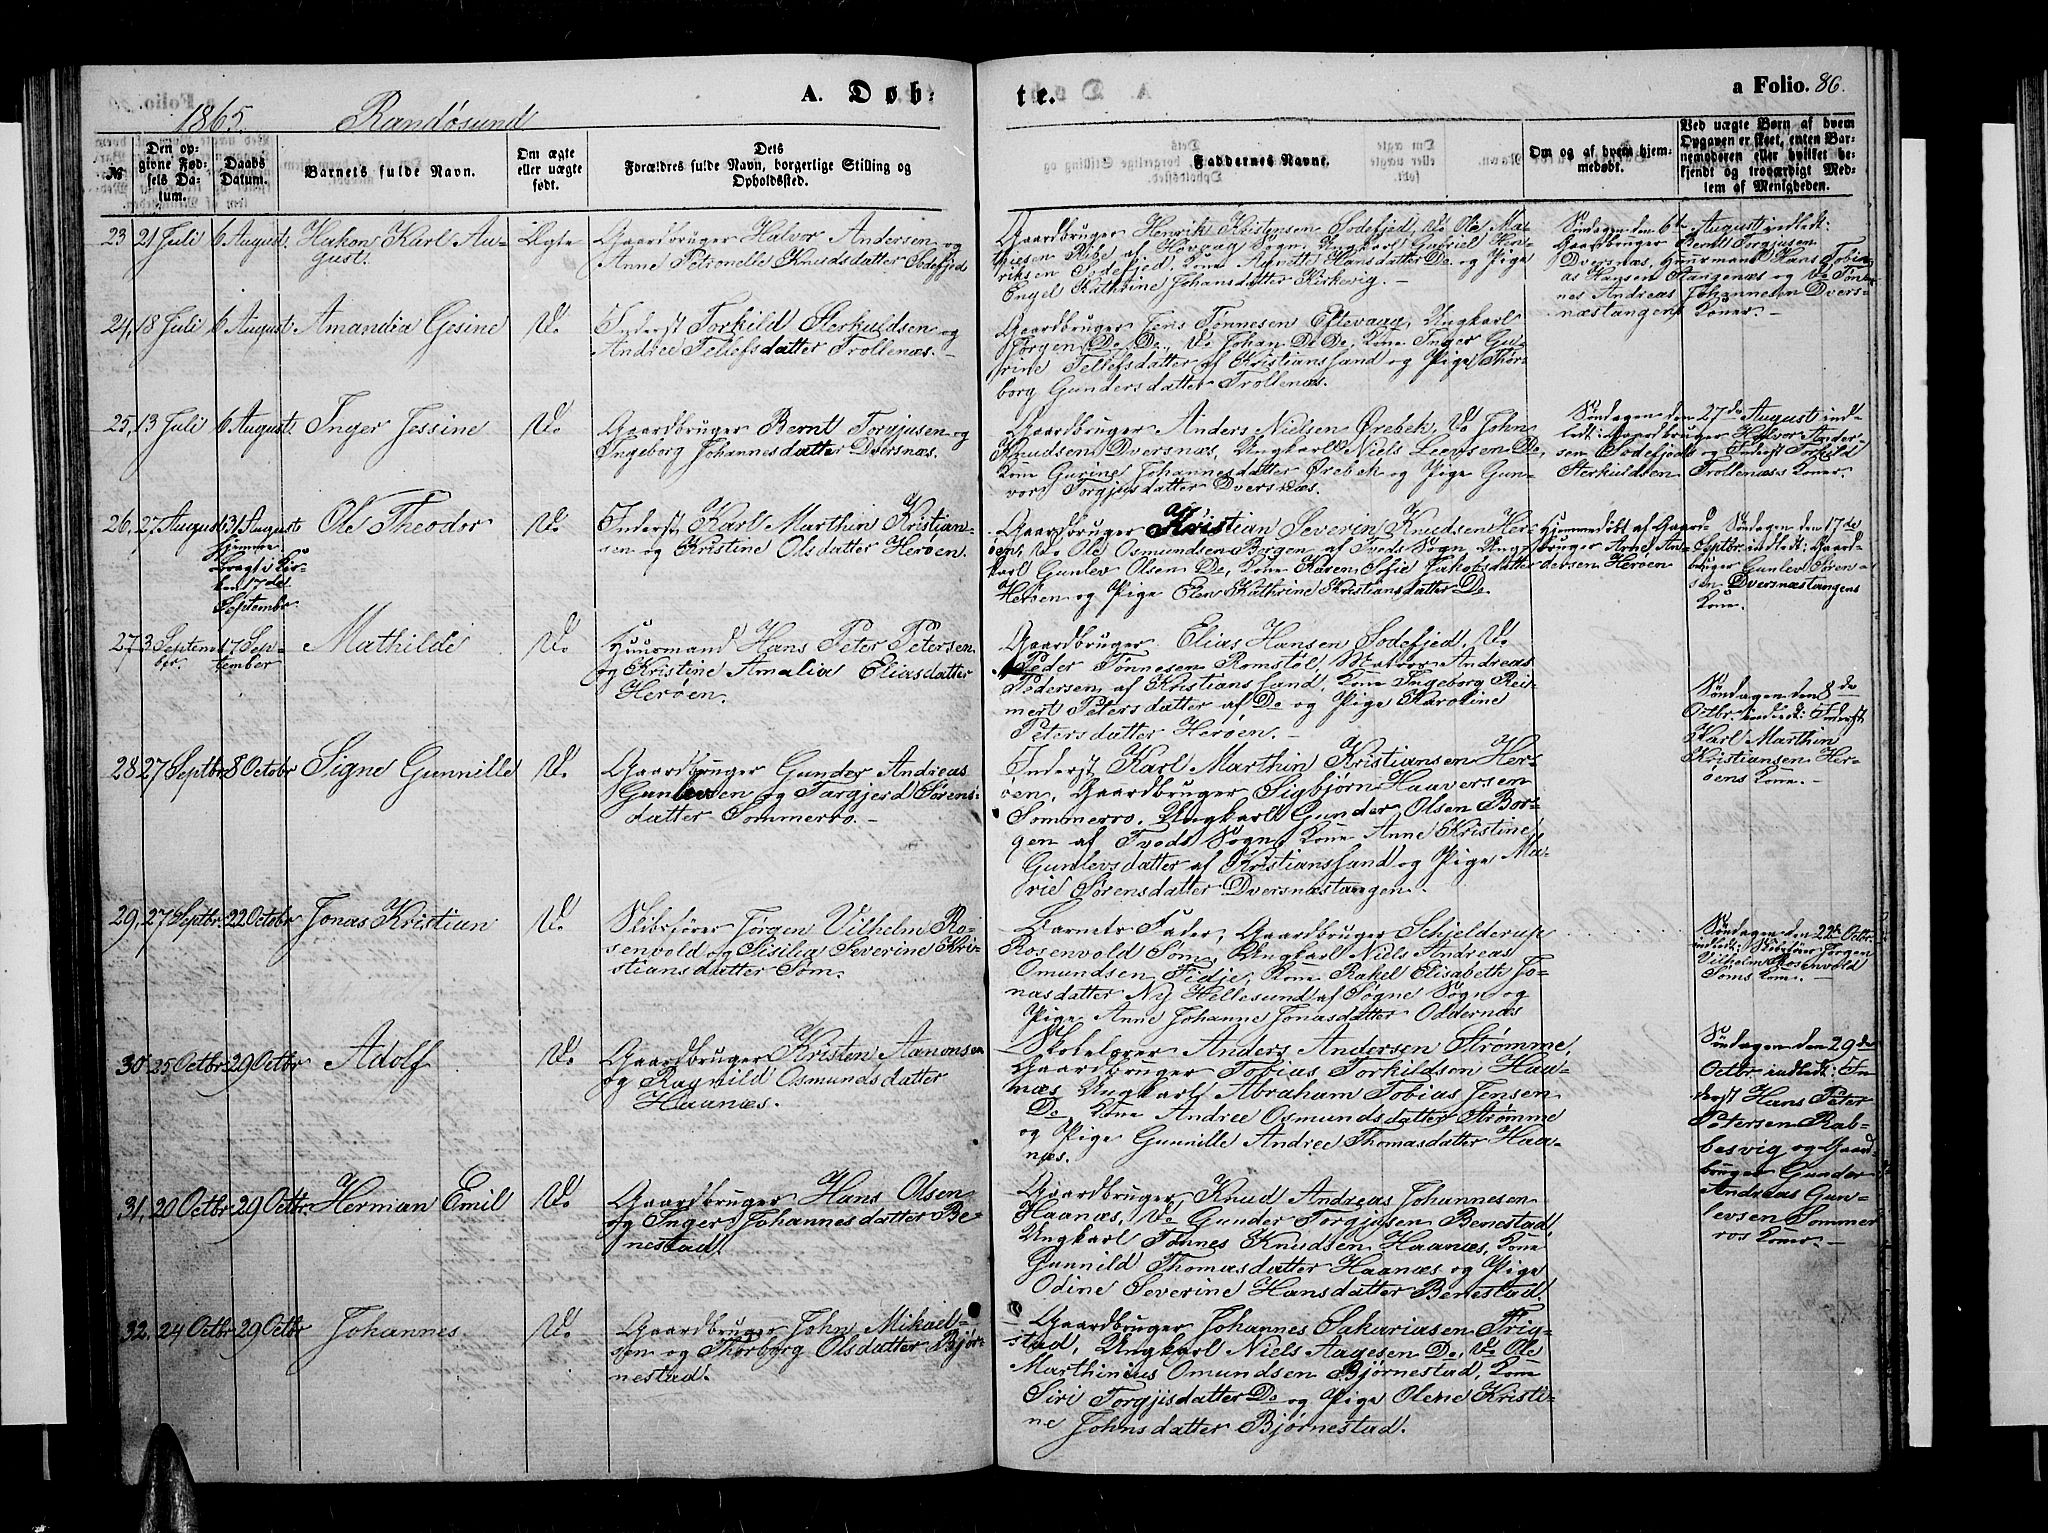 A. Døb-
te.
a Folio. 86.
1865. Randøsund
№
Den op-
givne Fød-
sels Da-
tum.
Daabs
Datum.
Barnets fulde Navn.
Om ægte
eller uægte
født.
Dets
Forældres fulde Navn, borgerlige Stilling og
Opholdssted.
Faddernes Navne.
Om og af hvem hjem-
medøbt.
Ved uægte Børn af hvem
Opgaven er skeet, enten Bar-
nemoderen eller hvilket be-
kjendt og troværdigt Med-
lem af Menigheden.
23 21 Juli 6 August. Hakon Karl Au-
gust. Ægte
Gaardbruger Halvor Andersen og
Anne Petronelle Knudsdatter Sodefjed
Gaardbruger Henrik Kristensen Sodefjed, Do Ole Ma-
thiesen Ribe af Høvaag Sogn, Ungkarl Gabriel Hen-
riksen Sodefjed, Kone Agnethe Hansdatter Do og Pige
Engel Kathrine Johansdatter Kirkevig. —
Søndagen den 6te August indledt:
Gaardbruger Bernt Torgjusen
Dversnæs, Huusmand Hans Tobi-
as Hansen Stangenæs og Do Tøn-
nes Andreas Johannesen Dvers-
næstangens Koner. —
24, 18 Juli 6 August. Amandia Gesine Do
Inderst Torkild Sterkuldsen og
Andrea Tellefsdatter Trollenæs. —
Gaardbruger Jens Tønnesen Eftevaag, Ungkarl
Jørgen Do Do, Do Johan Do Do, Kone Inger Gu-
rine Tellefsdatter af Kristianssand og Pige Thor-
borg Gundersdatter Trollenæs.
25, 13 Juli 6 August. Inger Jessine Do
Gaardbruger Bernt Torgjusen og
Ingeborg Johannesdatter Dversnæs.
Gaardbruger Anders Nielsen Ørebek, Do John
Knudsen Dversnæs, Ungkarl Niels Leevsen Do,
Kone Gurine Johannesdatter Ørebek og Pige Gun-
vor Torgjusdatter Dversnæs.
Søndagen den 27de August ind-
ledt: Gaardbruger Halvor Ander-
sen Sodefjeds og Inderst Torkild
Sterkuldsen Trollenæss Koner. —
26, 27 August 31 August
hjemme
bragt i Kir-
ken 17 de
Septembr
Ole Theodor Do
Inderst Karl Marthin Kristian-
sen og Kristine Olsdatter Herøen.
Gaardbruger Kristian Severin Knudsen Her-
øen, Do Ole Osmundsen Borgen af Tveds Sogn, Ung-
karl Gunlev Olsen Do, Kone Karen Sofie Jakobsdatter
Herøen og Pige Elen Kathrine Kristiansdatter Do
Hjemmedøbt af Gaard-
bruger Arne An-
dersen Herøen
Søndagen den 17 de
Septbr. indledt: Gaard-
bruger Gunlev Søren-
sen Dversnæstangens
Kone.
27, 3 Septem-
ber 17 Sep-
tember Mathilde Do
Huusmand Hans Peter Petersen
og Kristine Amalia Eliasdatter
Herøen.
Gaardbruger Elias Hansen Sodefjed, Do
Peder Tønnesen Romstøl, Matros Andreas
Pedersen af Kristianssand, Kone Ingeborg Rei-
mert Petersdatter af Do og Pige Karoline
Petersdatter Herøen. —
Søndagen den 8 de
Octbr. indledt: Inderst
Karl Marthin
Kristiansen Her-
øens Kone. —
28. 27 Septbr 8 Octobr Signe Gunnille Do
Gaardbruger Gunder Andreas
Gunlevsen og Targjerd Sørens-
datter Sommerro. —
Inderst Karl Marthin Kristiansen Her-
øen, Gaardbruger Sigbjørn Haaversen
Sommerro, Ungkarl Gunder Olsen Bor-
gen af Tveds Sogn, Kone Anne Kristine
Gunlevsdatter af Kristianssand og Pige Ma-
rie Sørensdatter Dversnæstangen.
29, 27 Septbr. 22 Octobr Jonas Kristian Do
Skibsfører Jørgen Vilhelm Ro-
senvold og Sisilia Severine Kri-
stiansdatter Søm.
Barnets Fader, Gaardbruger Schjelderup
Rosenvold Søm, Ungkarl Niels Andreas
Omundsen Fidje, Kone Rakel Elisabeth Jo-
nasdatter Ny Hellesund af Søgne Sogn og
Pige Anne Johanne Jonasdatter Oddernæs
Søndagen den 22de Octbr.
indledt: Skibsfører Jørgen
Vilhelm Rosenvold
Søms Kone. —
30. 25 Octbr. 29 Octbr Adolf. Do
Gaardbruger Kristen Aanonsen
og Ragnild Osmundsdatter
Haanæs.
Skolelærer Anders Andersen Strømme,
Gaardbruger Tobias Torkildsen Haa-
næs, Ungkarl Abraham Tobias Jensen
Do, Kone Andrea Osmundsdatter Strømme
og Pige Gunnille Andrea Thomasdatter Haa-
næs.
Søndagen den 29 de
Octbr indledt: In-
derst Hans Peter
Petersen Rab-
besvig og Gaard-
bruger Gunder
Andreas Gun-
levsen Sommer-
ros Koner. —
31, 20 Octbr. 29 Octbr. Herman Emil Do
Gaardbruger Hans Olsen
og Inger Johannesdatter Be-
nestad.
Gaardbruger Knud Andreas Johannesen
Haanæs, Do Gunder Torgjusen Benestad,
Ungkarl Tønnes Knudsen Haanæs, Kone
Gunnild Thomasdatter Haanæs og Pige
Odine Severine Hansdatter Benestad.
32. 24 Octbr. 29 Octbr Johannes. Do
Gaardbruger John Mikael-
sen og Thorborg Olsdatter Bjør-
nestad.
Gaardbruger Johannes Sakariasen Frig-
stad, Ungkarl Niels Aagesen Do, Do Ole
Marthinius Omundsen Bjørnestad, Kone
Siri Torgjisdatter Do og Pige Olene Kristi-
ne Johnsdatter Bjørnestad.